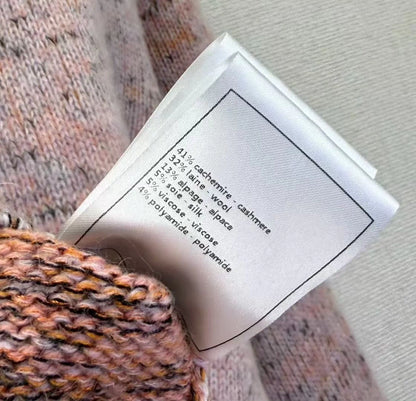 41% cachemire - cashmere
32% laine - wool
13% alpage - alpaca
5% soie - silk
5% viscose - viscose
4% polyamide - polyamide